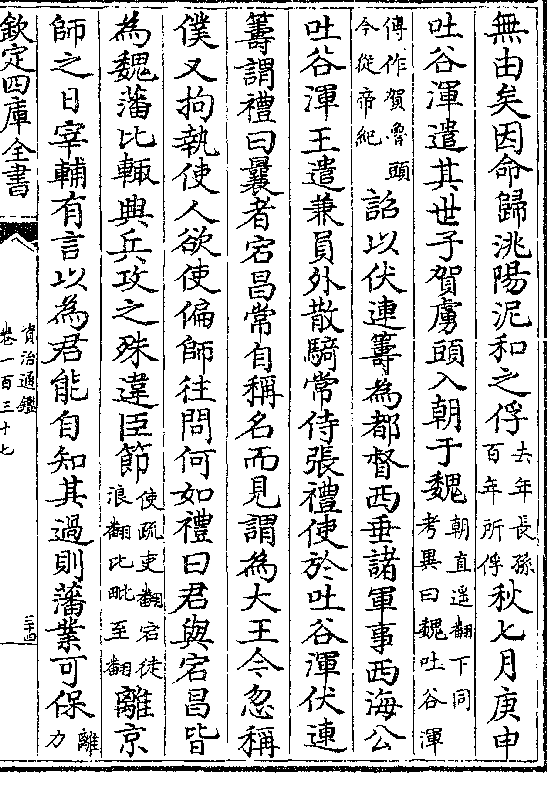 無由矣因命歸洮陽泥和之俘去年長孫百年所俘秋七月庚申
吐谷渾遣其世子賀虜頭入朝于魏朝直遥翻下同考異曰魏吐谷渾
傳作賀魯頭今從帝紀詔以伏連籌為都督西垂諸軍事西海公
吐谷渾王遣兼員外散騎常侍張禮使於吐谷渾伏連
籌謂禮曰曩者宕昌常自稱名而見謂為大王今忽稱
僕又拘執使人欲使偏師往問何如禮曰君與宕昌皆
為魏藩比輒興兵攻之殊違臣節使疏吏翻宕徒浪翻比毗至翻離京
師之日宰輔有言以為君能自知其過則藩業可保離力
欽定四庫全書
資治通鑑
卷一百三十七
二十四